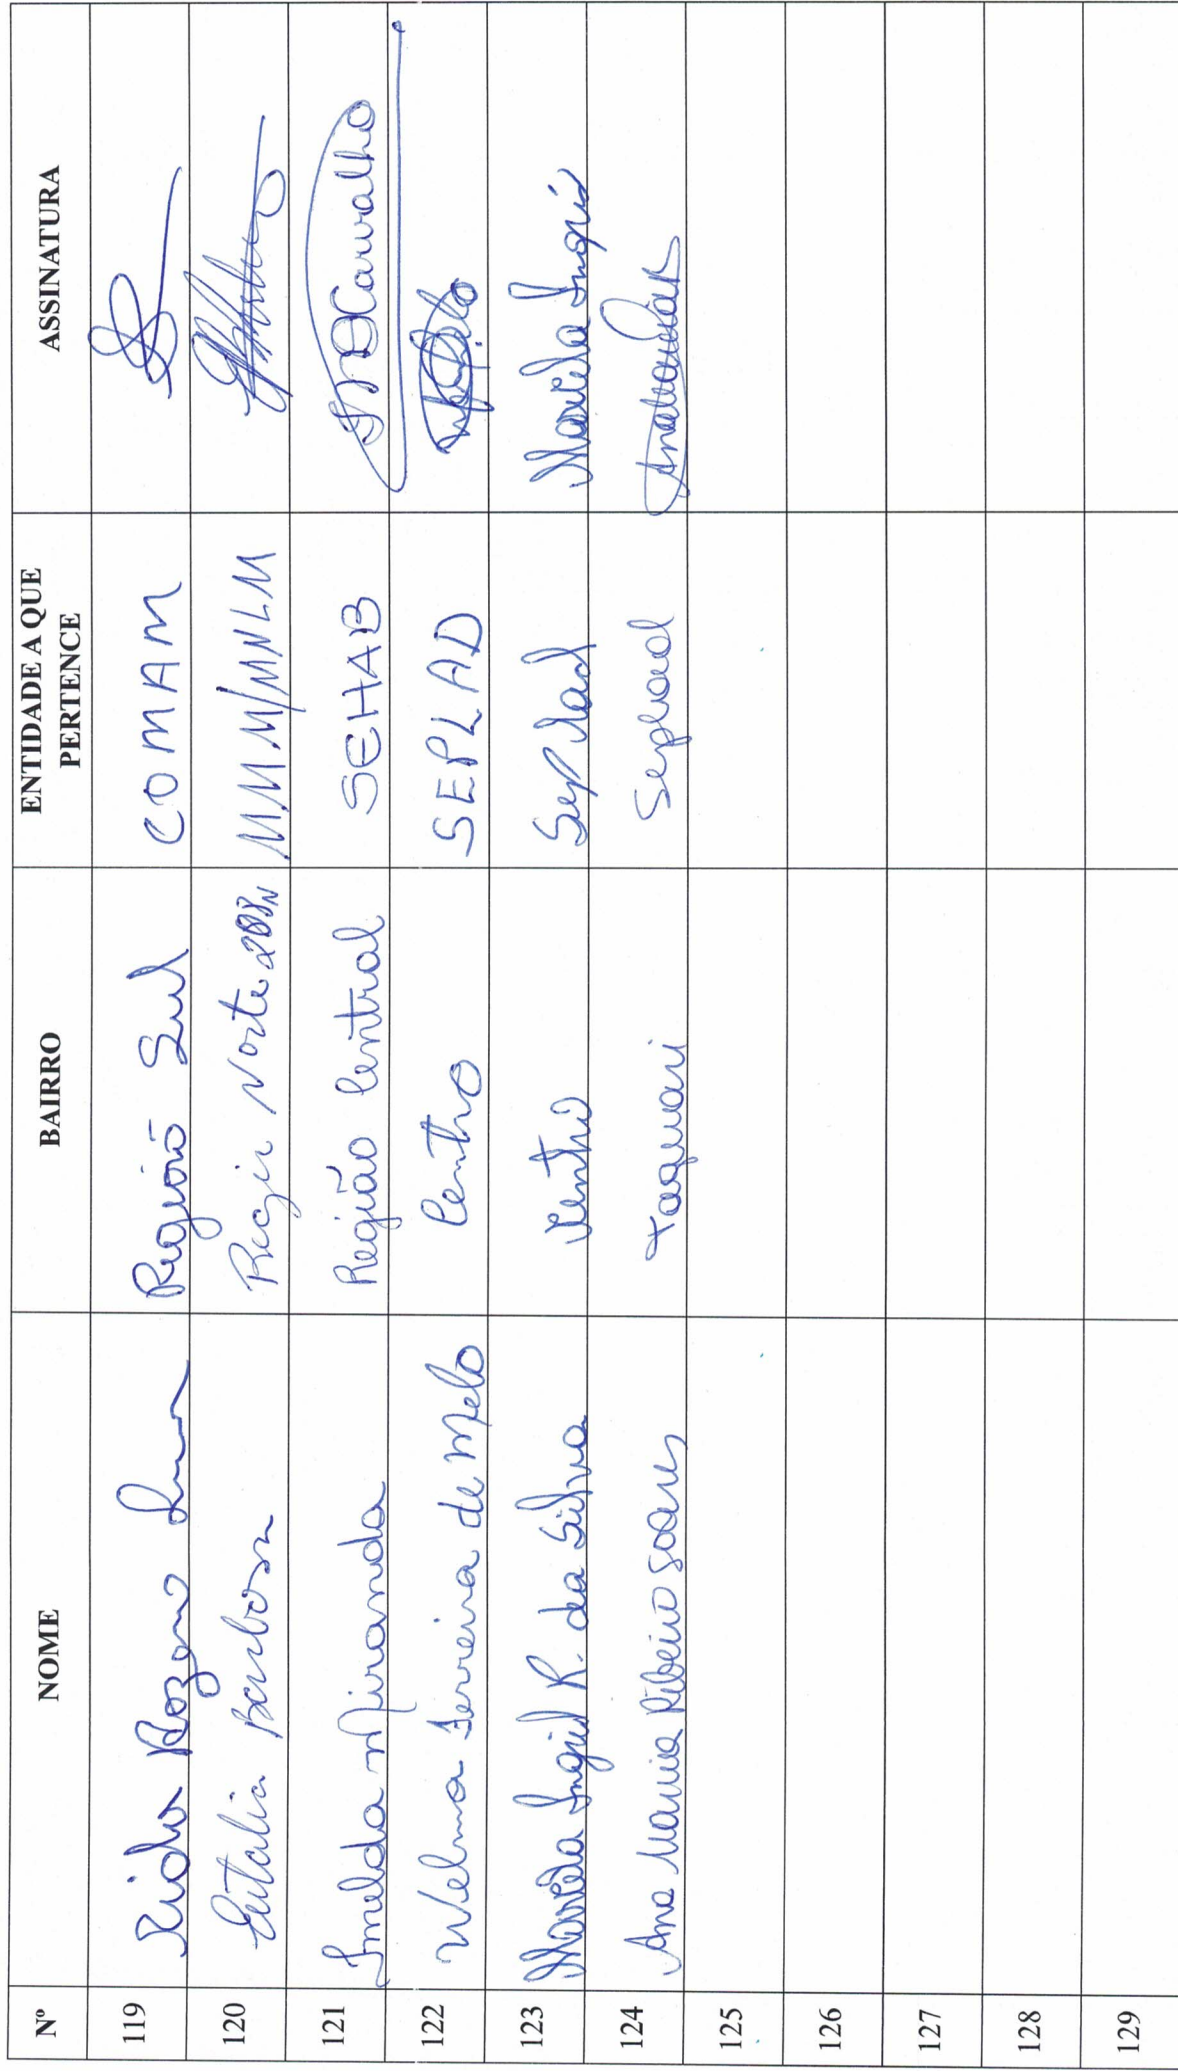 Nº NOME BAIRRO ENTIDADE A QUE PERTENCE ASSINATURA
119 Região Sul COMAM
120 Barbosa Norte MMM/MNLM
121 Imelda Miranda Região Central SEHAB IMDCarvalho
122 Welma Ferreira de Melo Centro SEPLAD
123 Marcela Ingrid R. da Silva Centro Seplad Marcela Ingrid
124 Ana Maria Ribeiro Soares Taquari Seplad
125
126
127
128
129